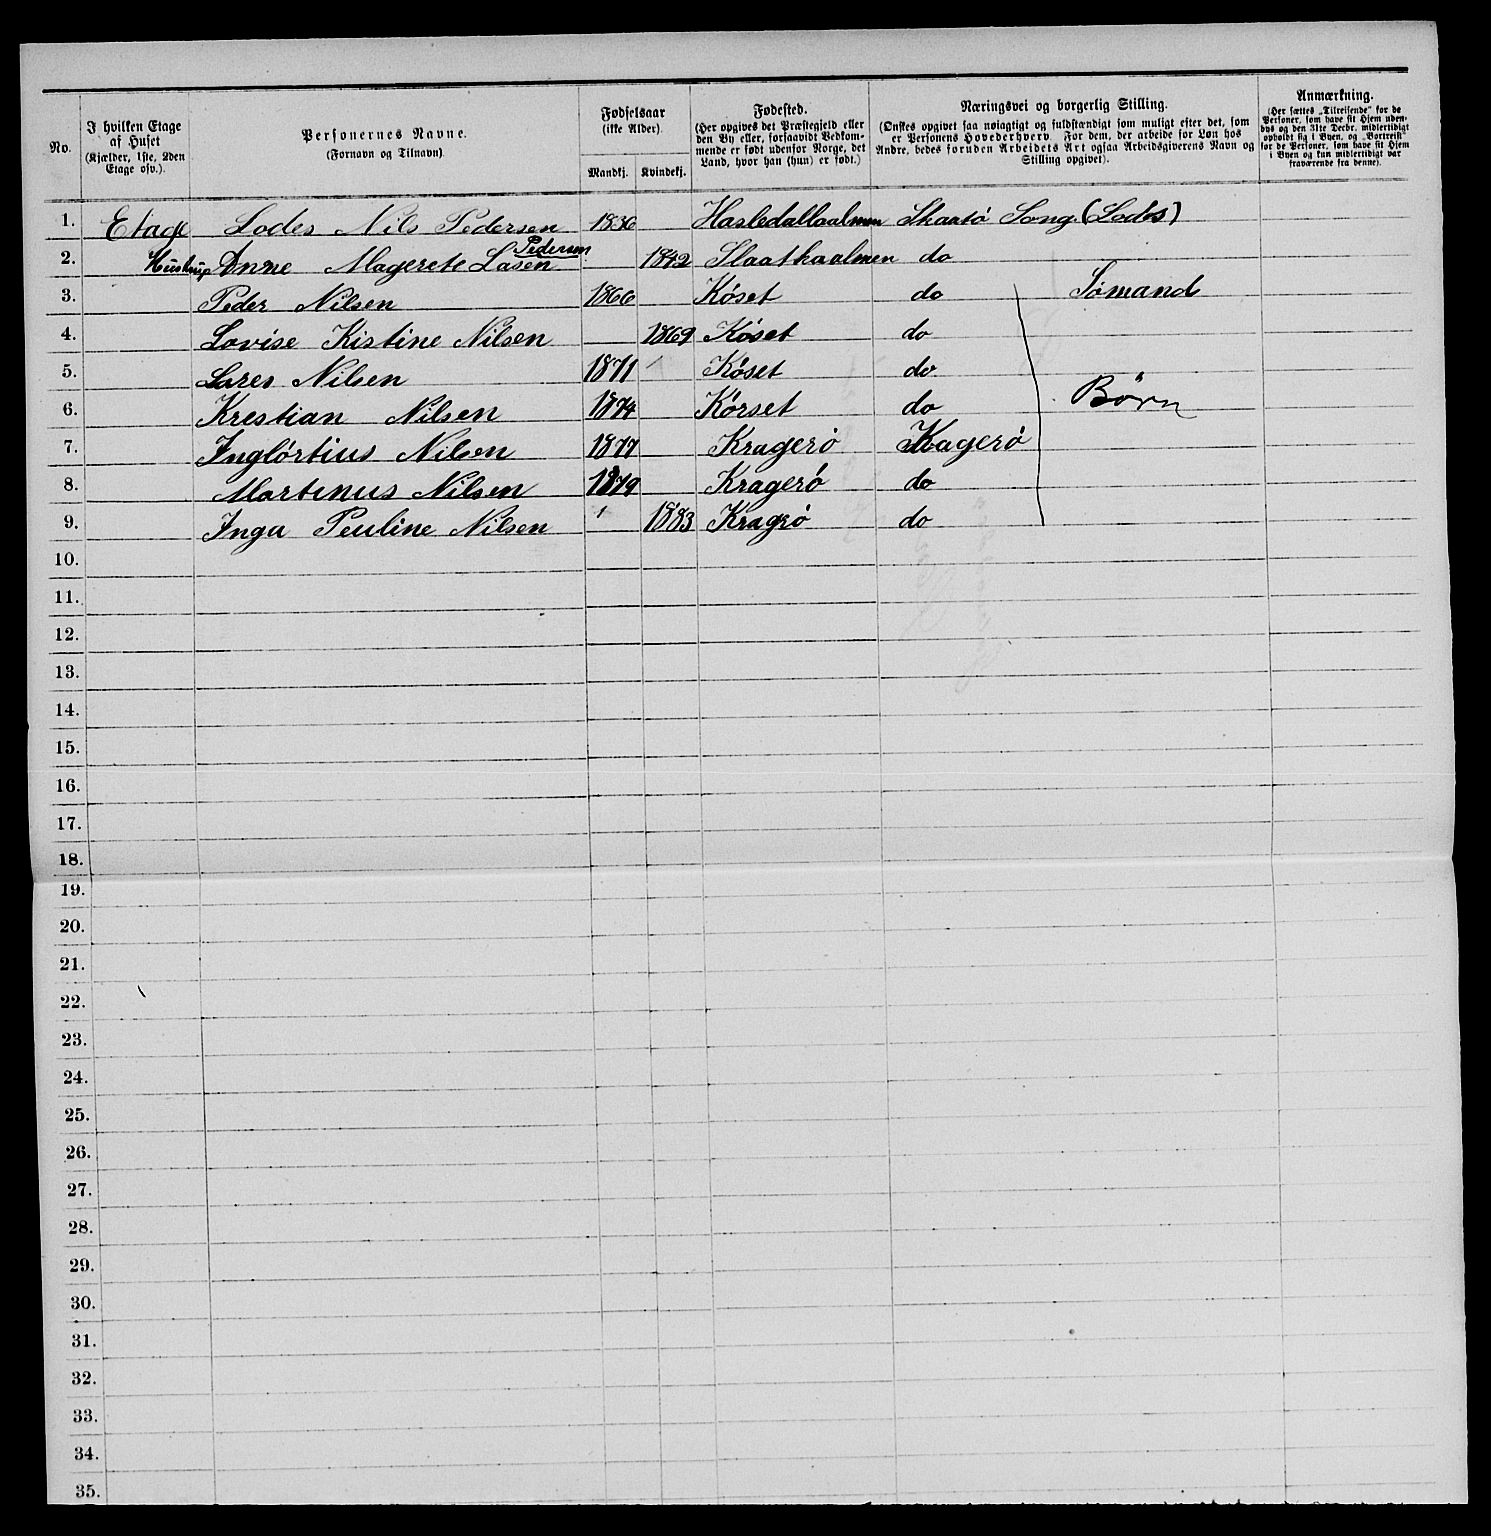 No.
I hvilken Etage af Huset (Kjælder, 1ste, 2den Etage osv.).
Personernes Navne. (Fornavn og Tilnavn).
Fødselsaar (ikke Alder). Mandkj. Kvindekj.
Fødested. (Her opgives det Præstegjeld eller den By eller, forsaavidt Vedkommende er født udenfor Norge, det Land, hvor han (hun) er født.)
Næringsvei og borgerlig Stilling. (Ønskes opgivet saa nøiagtigt og fuldstændigt som muligt efter det, som er Personens Hovederhverv. For dem, der arbeide for Løn hos Andre, bedes foruden Arbeidets Art ogsaa Arbeidsgiverens Navn og Stilling opgivet).
Anmærkning. (Her sættes „Tilreisende“ for de Personer, som have sit Hjem udenbys og den 31te Decbr. midlertidigt opholdt sig i Byen, og „Bortreist“ for de Personer, som have sit Hjem i Byen og kun midlertidigt var fraværende fra denne).
1. Etage Lodes Nils Pedersen 1836 Skaatø Song (Lodes)
Pedersen
2. Hustrup Anne Magerete Lasen 1842 Slaatkaalmen do
3. Peder Nilsen 1866 Köset do Sömand
4. Lovise Kistine Nilsen 1869 Köset do
5. Lares Nilsen 1871 Köset do
6. Krestian Nilsen 1874 Körset do Børn
7. Inglörtius Nilsen 1877 Kragerö Kagerö
8. Martinus Nilsen 1879 Kragerö do
9. Inga Peuline Nilsen 1883 Kragrö do
10.
11.
12.
13.
14.
15.
16.
17.
18.
19.
20.
21.
22.
23.
24.
25.
26.
27.
28.
29.
30.
31.
32.
33.
34.
35.